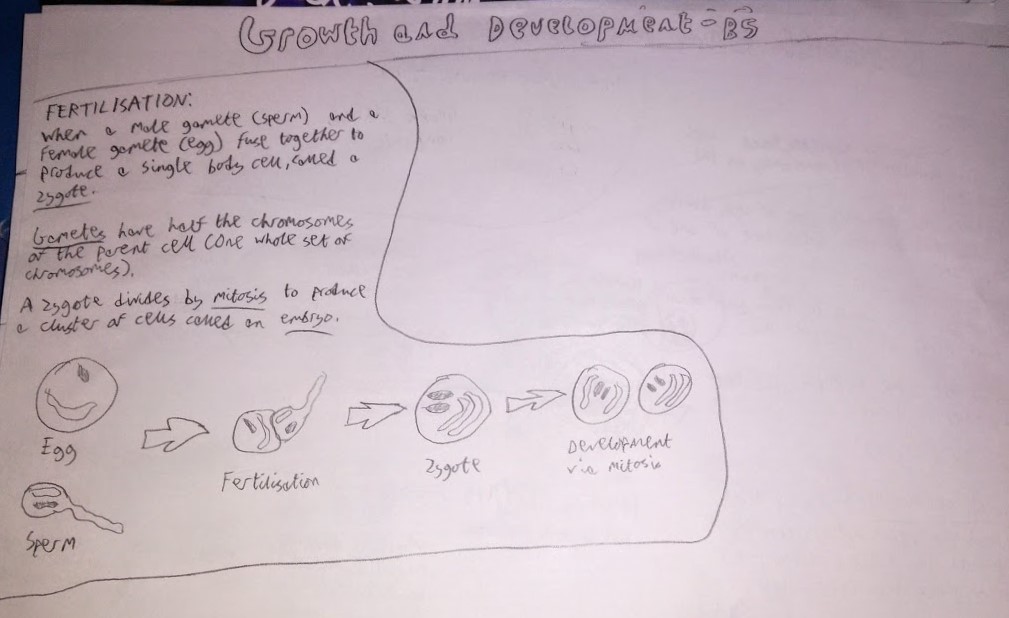 Growth and Development - B5
FERTILISATION:
When a male gamete (sperm) and a
female gamete (egg) fuse together to
produce a single body cell, called a
zygote.
Gametes have half the chromosomes
of the parent cell (one whole set of
chromosomes).
A zygote divides by mitosis to produce
a cluster of cells called an embryo.
Egg
Fertilisation
Zygote
Development
via mitosis
Sperm